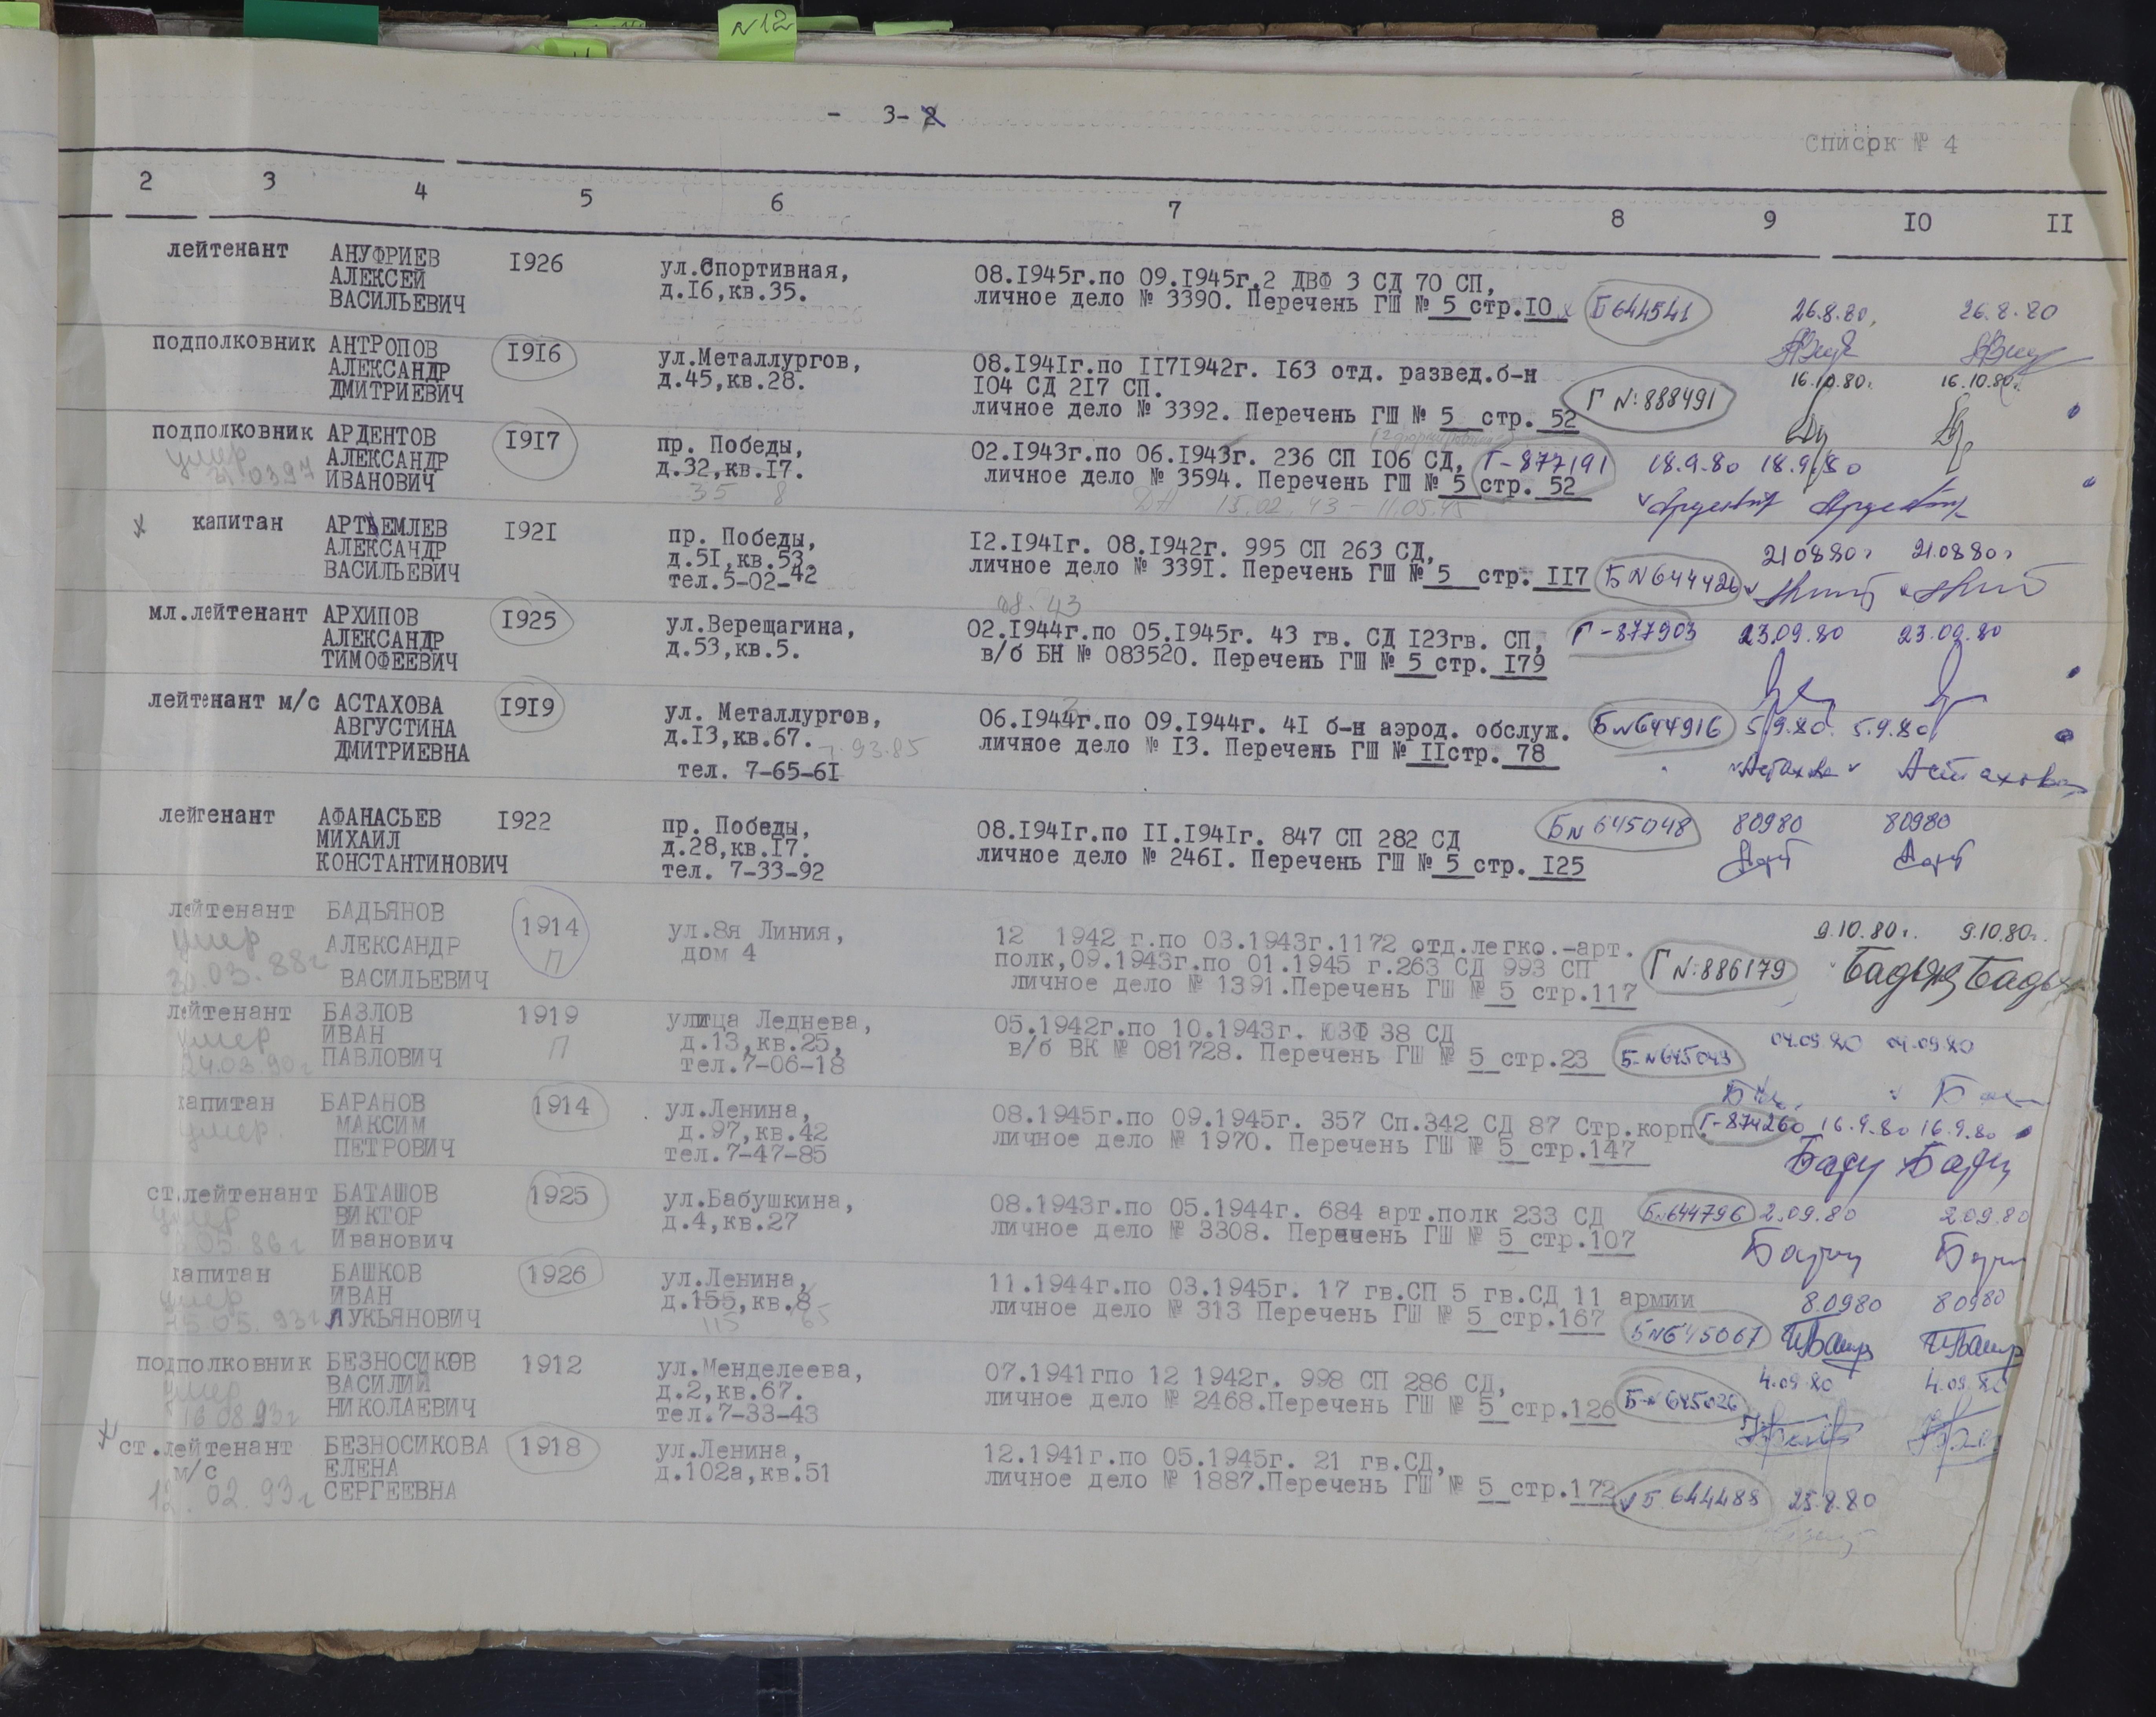 N12
- 3- 2
Список № 4
2 3 4 5 6 7 8 9 I0 II
лейтенант АНУФРИЕВ I926 ул.Спортивная, 08.I945г.по 09.I945г.2 ДВФ 3 СД 70 СП,
АЛЕКСЕЙ д.I6,кв.35. личное дело № 3390. Перечень ГШ № 5 стр.I0 Б 644541 26.8.80, 26.8.80
ВАСИЛЬЕВИЧ
подполковник АНТРОПОВ I9I6 ул.Металлургов, 08.I94Iг.по II7I942г. I63 отд. развед.б-н
АЛЕКСАНДР д.45,кв.28. I04 СД 2I7 СП. Г №:888491 16.10.80г. 16.10.80г.
ДМИТРИЕВИЧ личное дело № 3392. Перечень ГШ № 5 стр. 52
подполковник АРДЕНТОВ I9I7 пр. Победы, 02.I943г.по 06.I943г. 236 СП I06 СД, Г-877191 18.9.80 18.9.80
умер АЛЕКСАНДР д.32,кв.I7. личное дело № 3594. Перечень ГШ № 5 стр. 52
ИВАНОВИЧ 35 8 15.02.43 - 11.05.45
х капитан АРТЬЕМЛЕВ I92I пр. Победы, I2.I94Iг. 08.I942г. 995 СП 263 СД, 210880г 21.0880г
АЛЕКСАНДР д.5I,кв.53. личное дело № 339I. Перечень ГШ № 5 стр. II7 Б N644426
ВАСИЛЬЕВИЧ тел.5-02-42
08.43
мл.лейтенант АРХИПОВ I925 ул.Верещагина, 02.I944г.по 05.I945г. 43 гв. СД I23гв. СП, Г-877903 23.09.80 23.09.80
АЛЕКСАНДР д.53,кв.5. в/б БН № 083520. Перечень ГШ № 5 стр. I79
ТИМОФЕЕВИЧ
лейтенант м/с АСТАХОВА I9I9 ул. Металлургов, 06.I944г.по 09.I944г. 4I б-н аэрод. обслуж. БN644916 5.9.80. 5.9.80
АВГУСТИНА д.I3,кв.67. 7-93-85 личное дело № I3. Перечень ГШ № IIстр. 78
ДМИТРИЕВНА тел. 7-65-6I Астахова Астахова
лейтенант АФАНАСЬЕВ I922 пр. Победы, 08.I94Iг.по II.I94Iг. 847 СП 282 СД БN 645048 80980 80980
МИХАИЛ д.28,кв.I7. личное дело № 246I. Перечень ГШ № 5 стр. I25
КОНСТАНТИНОВИЧ тел. 7-33-92
лейтенант БАДЬЯНОВ 1914 ул.8я Линия, 12 1942 г.по 03.1943г.1172 отд.легко.-арт. 9.10.80г. 9.10.80г.
умер АЛЕКСАНДР П дом 4 полк,09.1943г.по 01.1945 г.263 СД 993 СП Г №:886179
30.03.88г ВАСИЛЬЕВИЧ личное дело № 1391.Перечень ГШ № 5 стр.117
лейтенант БАЗЛОВ 1919 улица Леднева, 05.1942г.по 10.1943г. ЮЗФ 38 СД 04.09.80 04.09.80
умер ИВАН П д.13,кв.25, в/б ВК № 081728. Перечень ГШ № 5 стр.23 Б-N645043
24.03.90г ПАВЛОВИЧ тел.7-06-18
капитан БАРАНОВ 1914 ул.Ленина, 08.1945г.по 09.1945г. 357 Сп.342 СД 87 Стр.корп. Г-874260 16.9.80 16.9.80
умер. МАКСИМ д.97,кв.42 личное дело № 1970. Перечень ГШ № 5 стр.147
ПЕТРОВИЧ тел.7-47-85
ст.лейтенант БАТАШОВ 1925 ул.Бабушкина, 08.1943г.по 05.1944г. 684 арт.полк 233 СД БN644796 2.09.80 2.09.80
умер ВИКТОР д.4,кв.27 личное дело № 3308. Перечень ГШ № 5 стр.107
05.86г Иванович
капитан БАШКОВ 1926 ул.Ленина, 11.1944г.по 03.1945г. 17 гв.СП 5 гв.СД 11 армии 8.0980 80980
умер ИВАН д.155,кв.8 личное дело № 313 Перечень ГШ № 5 стр.167 БN645067
05.93г ЛУКЬЯНОВИЧ 115 65
подполковник БЕЗНОСИКОВ 1912 ул.Менделеева, 07.1941гпо 12 1942г. 998 СП 286 СД, 4.09.80 4.09.80
умер ВАСИЛИЙ д.2,кв.67. личное дело № 2468.Перечень ГШ № 5 стр.126 Б-N 645026
16.08.93г НИКОЛАЕВИЧ тел.7-33-43
х ст.лейтенант БЕЗНОСИКОВА 1918 ул.Ленина, 12.1941г.по 05.1945г. 21 гв.СД,
м/с ЕЛЕНА д.102а,кв.51 личное дело № 1887.Перечень ГШ № 5 стр.172 Б 644488 25.8.80
12.02.93г СЕРГЕЕВНА